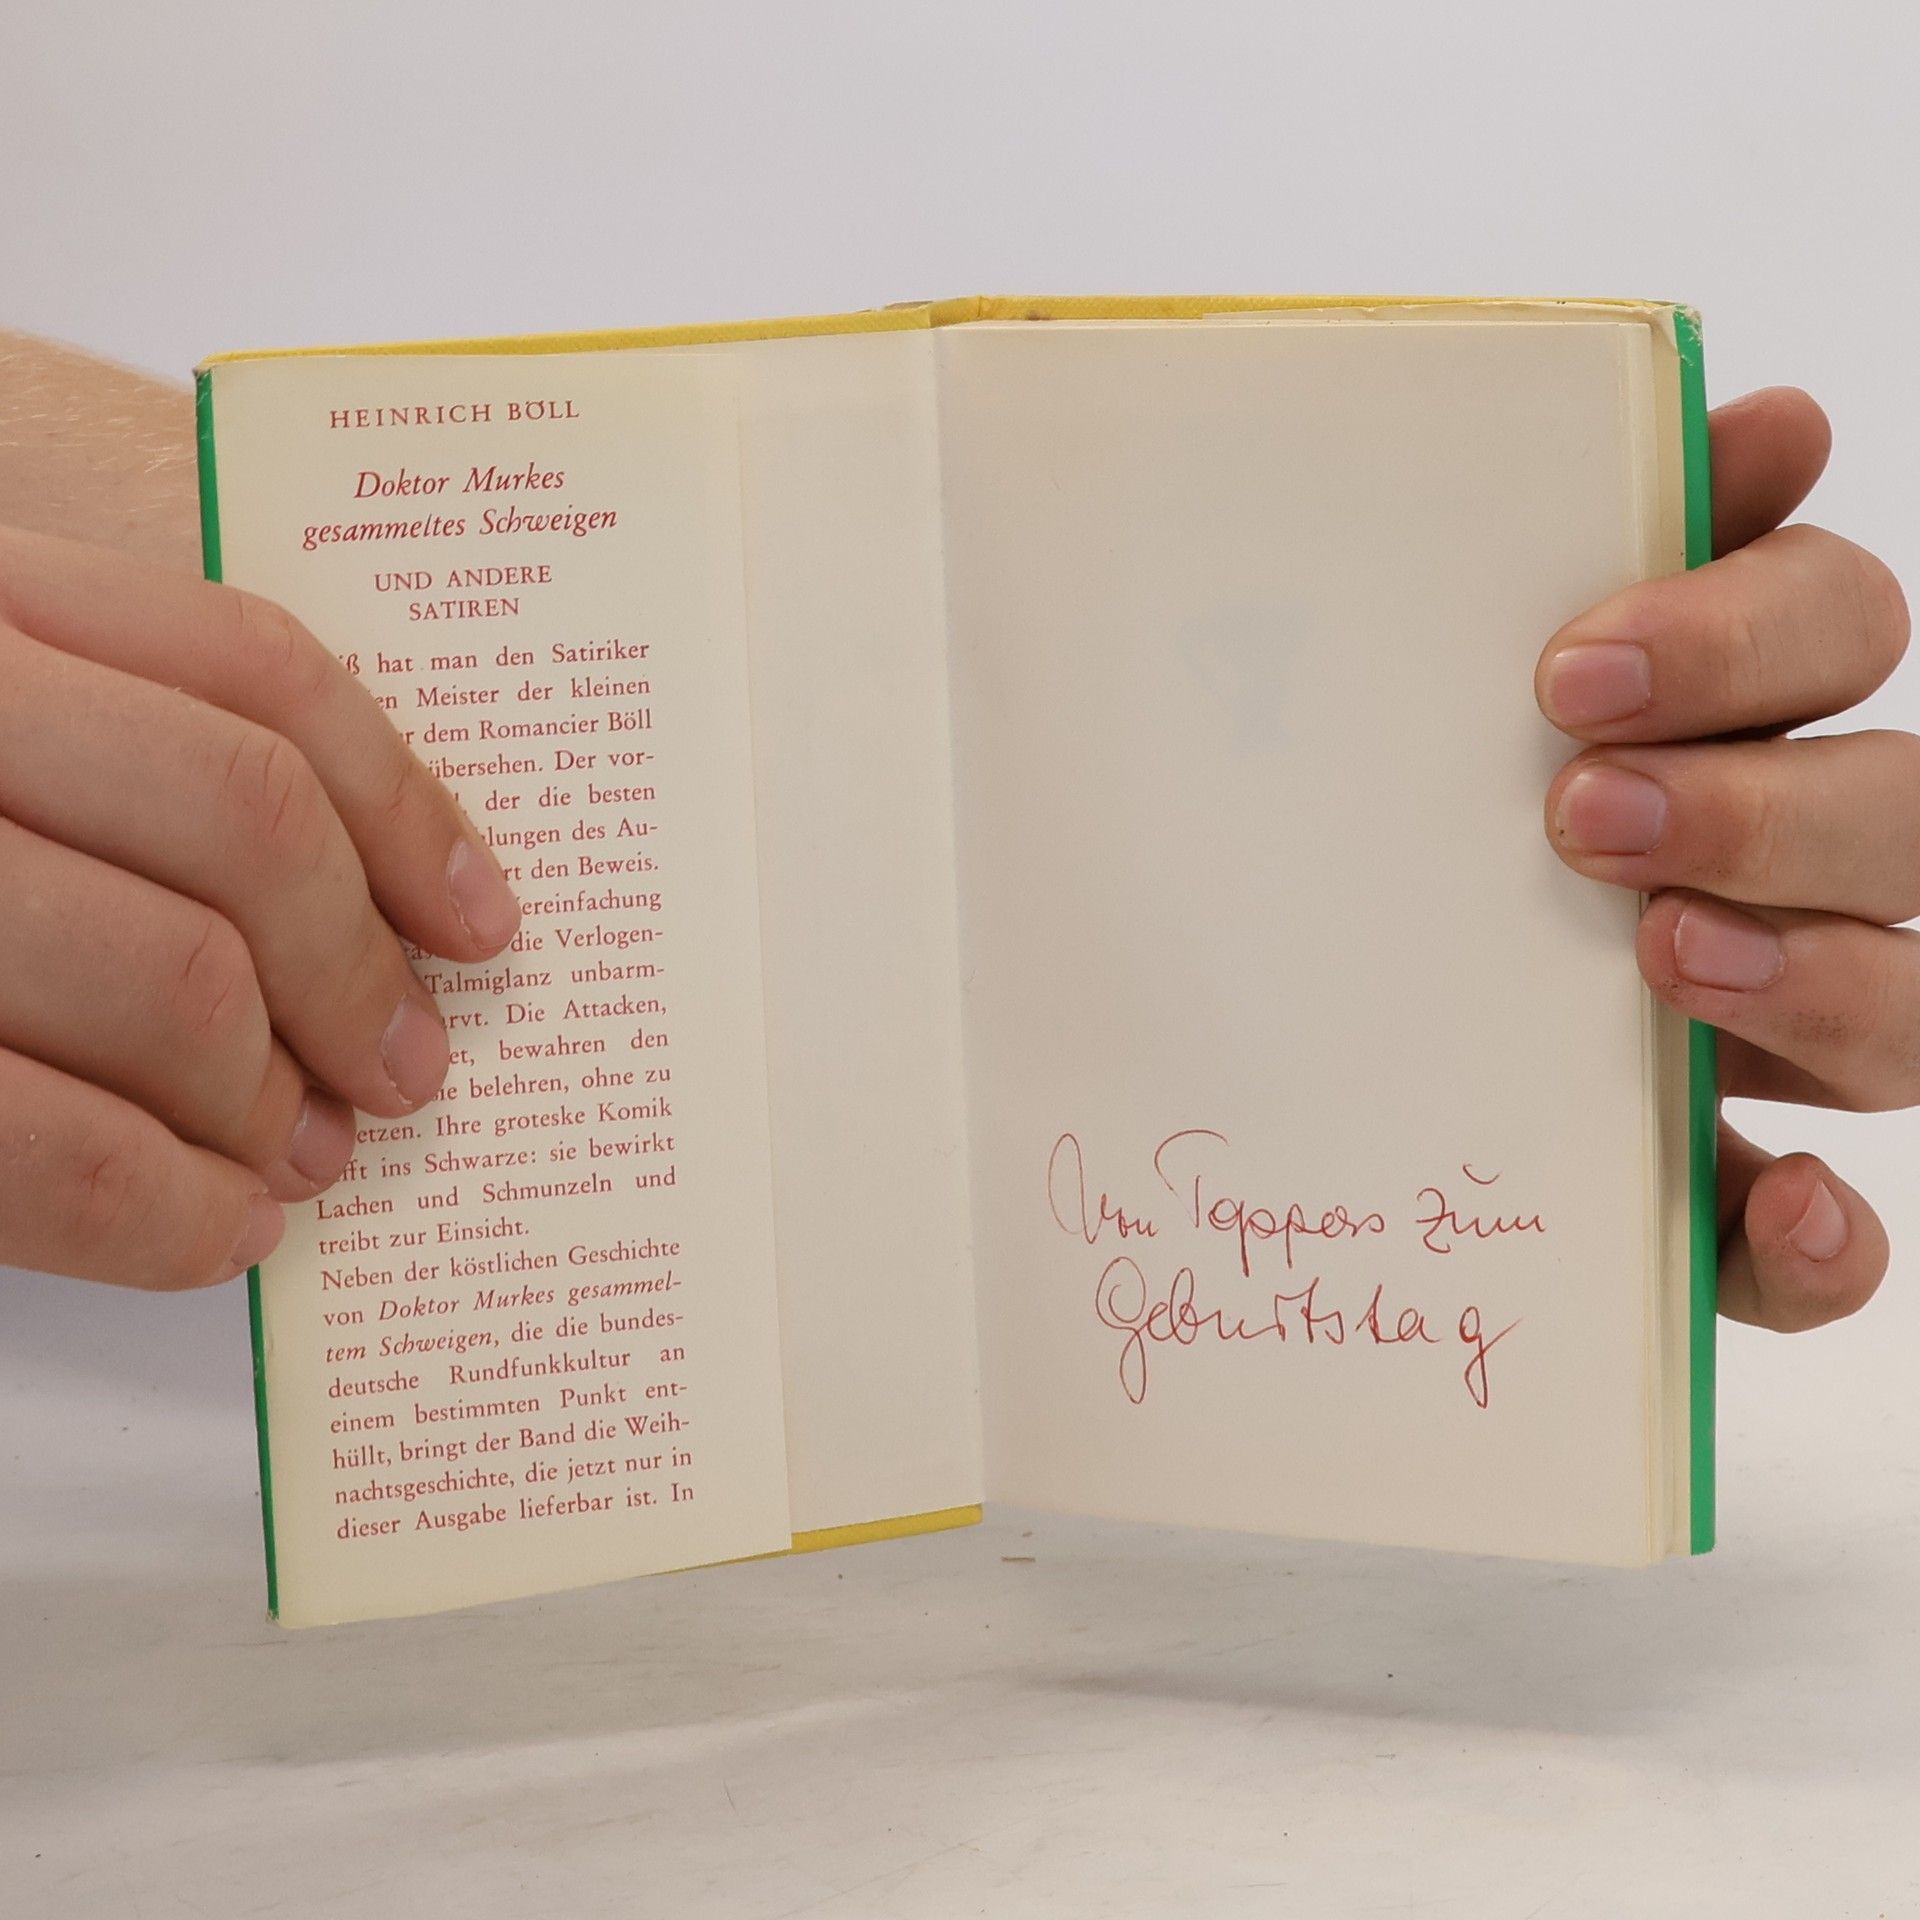 HEINRICH BÖLL
Doktor Murkes
gesammeltes Schweigen
UND ANDERE
SATIREN
hat man den Satiriker
Meister der kleinen
dem Romancier Böll
übersehen. Der vor-
der die besten
des Au-
den Beweis.
die Verlogen-
Talmiglanz unbarm-
Die Attacken,
bewahren den
belehren, ohne zu
Ihre groteske Komik
ins Schwarze: sie bewirkt
Lachen und Schmunzeln und
treibt zur Einsicht.
Neben der köstlichen Geschichte
von Doktor Murkes gesammel-
tem Schweigen, die die bundes-
deutsche Rundfunkkultur an
einem bestimmten Punkt ent-
hüllt, bringt der Band die Weih-
nachtsgeschichte, die jetzt nur in
dieser Ausgabe lieferbar ist. In
Von Töppers zum
Geburtstag